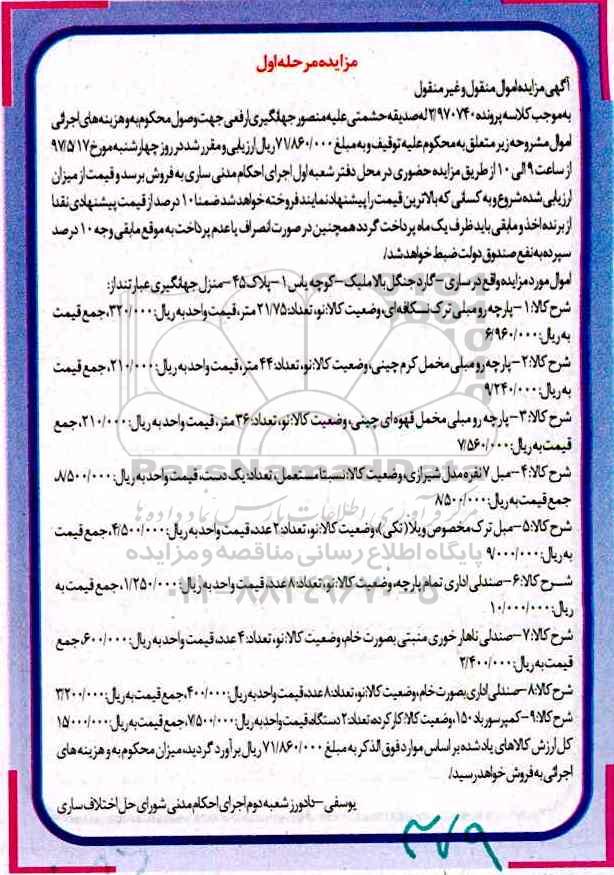 مزایده مرحله اول
آگهی مزایده اموال منقول و غیر منقول
به موجب کلاسه پرونده ۲/۹۷۰۷۴۰ له صدیقه حشمتی علیه منصور جهانگیری ارفعی جهت وصول محکوم به و هزینه های اجرائی
اموال مشروحه زیر متعلق به محکوم علیه توقیف و به مبلغ ۷۱/۸۶۰/۰۰۰ ریال ارزیابی و مقرر شد در روز چهارشنبه مورخ ۹۷/۵/۱۷
از ساعت ۹ الی ۱۰ از طریق مزایده حضوری در محل دفتر شعبه اول اجرای احکام مدنی ساری به فروش برسد و قیمت از میزان
ارزیابی شده شروع و به کسانی که بالاترین قیمت را پیشنهاد نمایند فروخته خواهد شد ضمنا ۱۰ درصد از قیمت پیشنهادی نقدا
از برنده اخذ و مابقی باید ظرف یک ماه پرداخت گردد همچنین در صورت انصراف یا عدم پرداخت به موقع مابقی وجه ۱۰ درصد
سپرده به نفع صندوق دولت ضبط خواهد شد/
اموال مورد مزایده واقع در ساری – گارد جنگل بالا ملیک – کوچه یاس ۱ – پلاک ۴۵ – منزل جهانگیری عبارتند از:
شرح کالا: ۱- پارچه رو مبلی ترک نسکافه ای، وضعیت کالا: نو، تعداد: ۲۱/۷۵ متر، قیمت واحد به ریال: ۳۲۰/۰۰۰، جمع قیمت
به ریال: ۶/۹۶۰/۰۰۰
شرح کالا: ۲- پارچه رو مبلی مخمل کرم چینی، وضعیت کالا: نو، تعداد: ۴۴ متر، قیمت واحد به ریال: ۲۱۰/۰۰۰، جمع قیمت
به ریال: ۹/۲۴۰/۰۰۰
شرح کالا: ۳- پارچه رو مبلی مخمل قهوه ای چینی، وضعیت کالا: نو، تعداد: ۳۶ متر، قیمت واحد به ریال: ۲۱۰/۰۰۰، جمع
قیمت به ریال: ۷/۵۶۰/۰۰۰
شرح کالا: ۴- مبل ۷ نفره مدل شیرازی، وضعیت کالا: نسبتا مستعمل، تعداد: یک دست، قیمت واحد به ریال: ۸/۵۰۰/۰۰۰،
جمع قیمت به ریال: ۸/۵۰۰/۰۰۰
شرح کالا: ۵- مبل ترک مخصوص ویلا (تکی)، وضعیت کالا: نو، تعداد: ۲ عدد، قیمت واحد به ریال: ۴/۵۰۰/۰۰۰، جمع قیمت
به ریال: ۹/۰۰۰/۰۰۰
شرح کالا: ۶- صندلی اداری تمام پارچه، وضعیت کالا: نو، تعداد: ۸ عدد، قیمت واحد به ریال: ۱/۲۵۰/۰۰۰، جمع قیمت به
ریال: ۱۰/۰۰۰/۰۰۰
شرح کالا: ۷- صندلی ناهار خوری منبتی بصورت خام، وضعیت کالا: نو، تعداد: ۴ عدد، قیمت واحد به ریال: ۶۰۰/۰۰۰، جمع
قیمت به ریال: ۲/۴۰۰/۰۰۰
شرح کالا: ۸- صندلی اداری بصورت خام، وضعیت کالا: نو، تعداد: ۸ عدد، قیمت واحد به ریال: ۴۰۰/۰۰۰، جمع قیمت به ریال: ۳/۲۰۰/۰۰۰
شرح کالا: ۹- کمپرسور باد ۱۵۰، وضعیت کالا: کارکرده، تعداد: ۲ دستگاه، قیمت واحد به ریال: ۷/۵۰۰/۰۰۰، جمع قیمت به ریال: ۱۵/۰۰۰/۰۰۰
کل ارزش کالاهای یاد شده بر اساس موارد فوق الذکر به مبلغ ۷۱/۸۶۰/۰۰۰ ریال برآورد گردید، میزان محکوم به و هزینه های
اجرائی به فروش خواهد رسید/
یوسفی – دادورز شعبه دوم اجرای احکام مدنی شورای حل اختلاف ساری
ParsNamadData
مرکز فرآوری اطلاعات پارس نماد داده ها
پایگاه اطلاع رسانی مناقصه و مزایده
۰۲۱-۸۸۳۴۹۶۷۰-۵